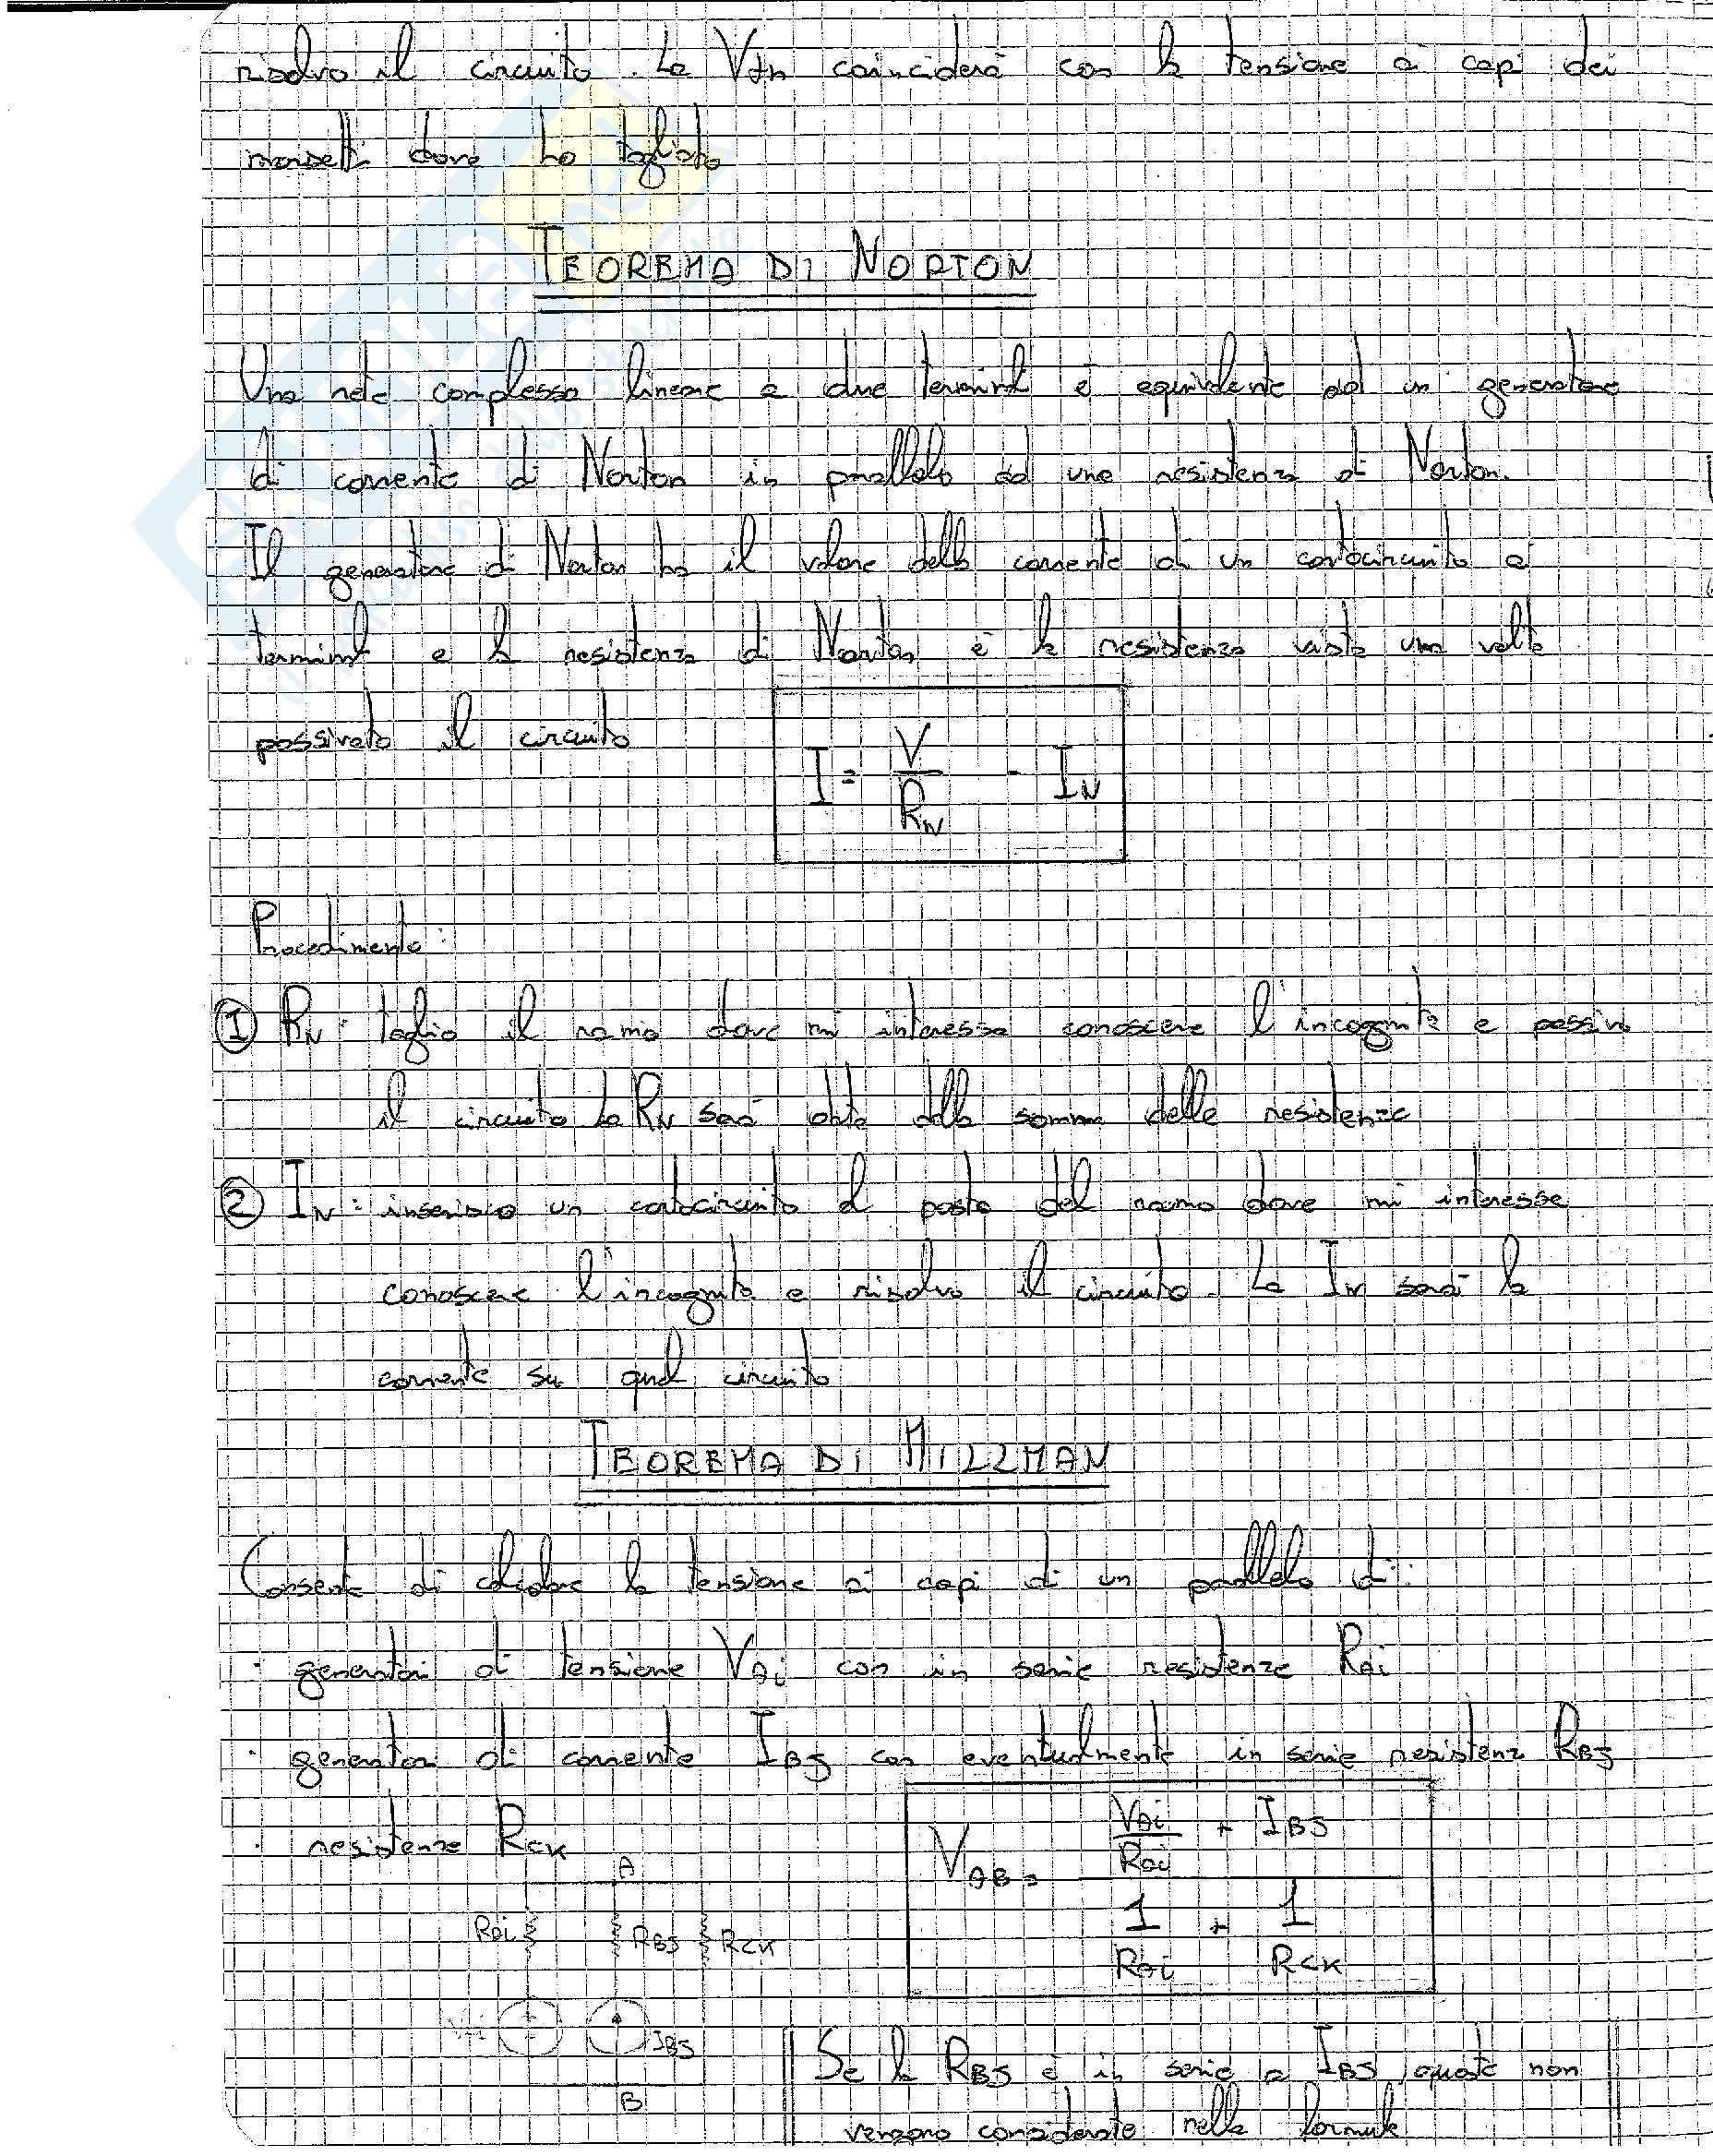 risolvo il circuito. La Vth coinciderà con la tensione ai capi dei
morsetti dove ho tagliato
TEOREMA DI NORTON
Una rete complessa lineare a due terminali è equivalente ad un generatore
di corrente di Norton in parallelo ad una resistenza di Norton.
Il generatore di Norton ha il valore della corrente di un cortocircuito ai
terminali e la resistenza di Norton è la resistenza vista una volta
passivato il circuito
I = V/RN - IN
Procedimento:
① RN: taglio il ramo dove mi interessa conoscere l'incognita e passivo
il circuito la RN sarà data dalla somma delle resistenze
② IN: inserisco un cortocircuito al posto del ramo dove mi interessa
conoscere l'incognita e risolvo il circuito. La IN sarà la
corrente su quel circuito
TEOREMA DI MILLMAN
Consente di calcolare la tensione ai capi di un parallelo di:
· generatori di tensione VAi con in serie resistenze RAi
· generatori di corrente IBJ con eventualmente in serie resistenze RBJ
· resistenze RCK
VAB = (VAi/RAi + IBJ) / (1/RAi + 1/RCK)
A
RAi RBJ RCK
VAi IBJ
B
Se la RBJ è in serie a IBJ queste non
vengono considerate nella formula